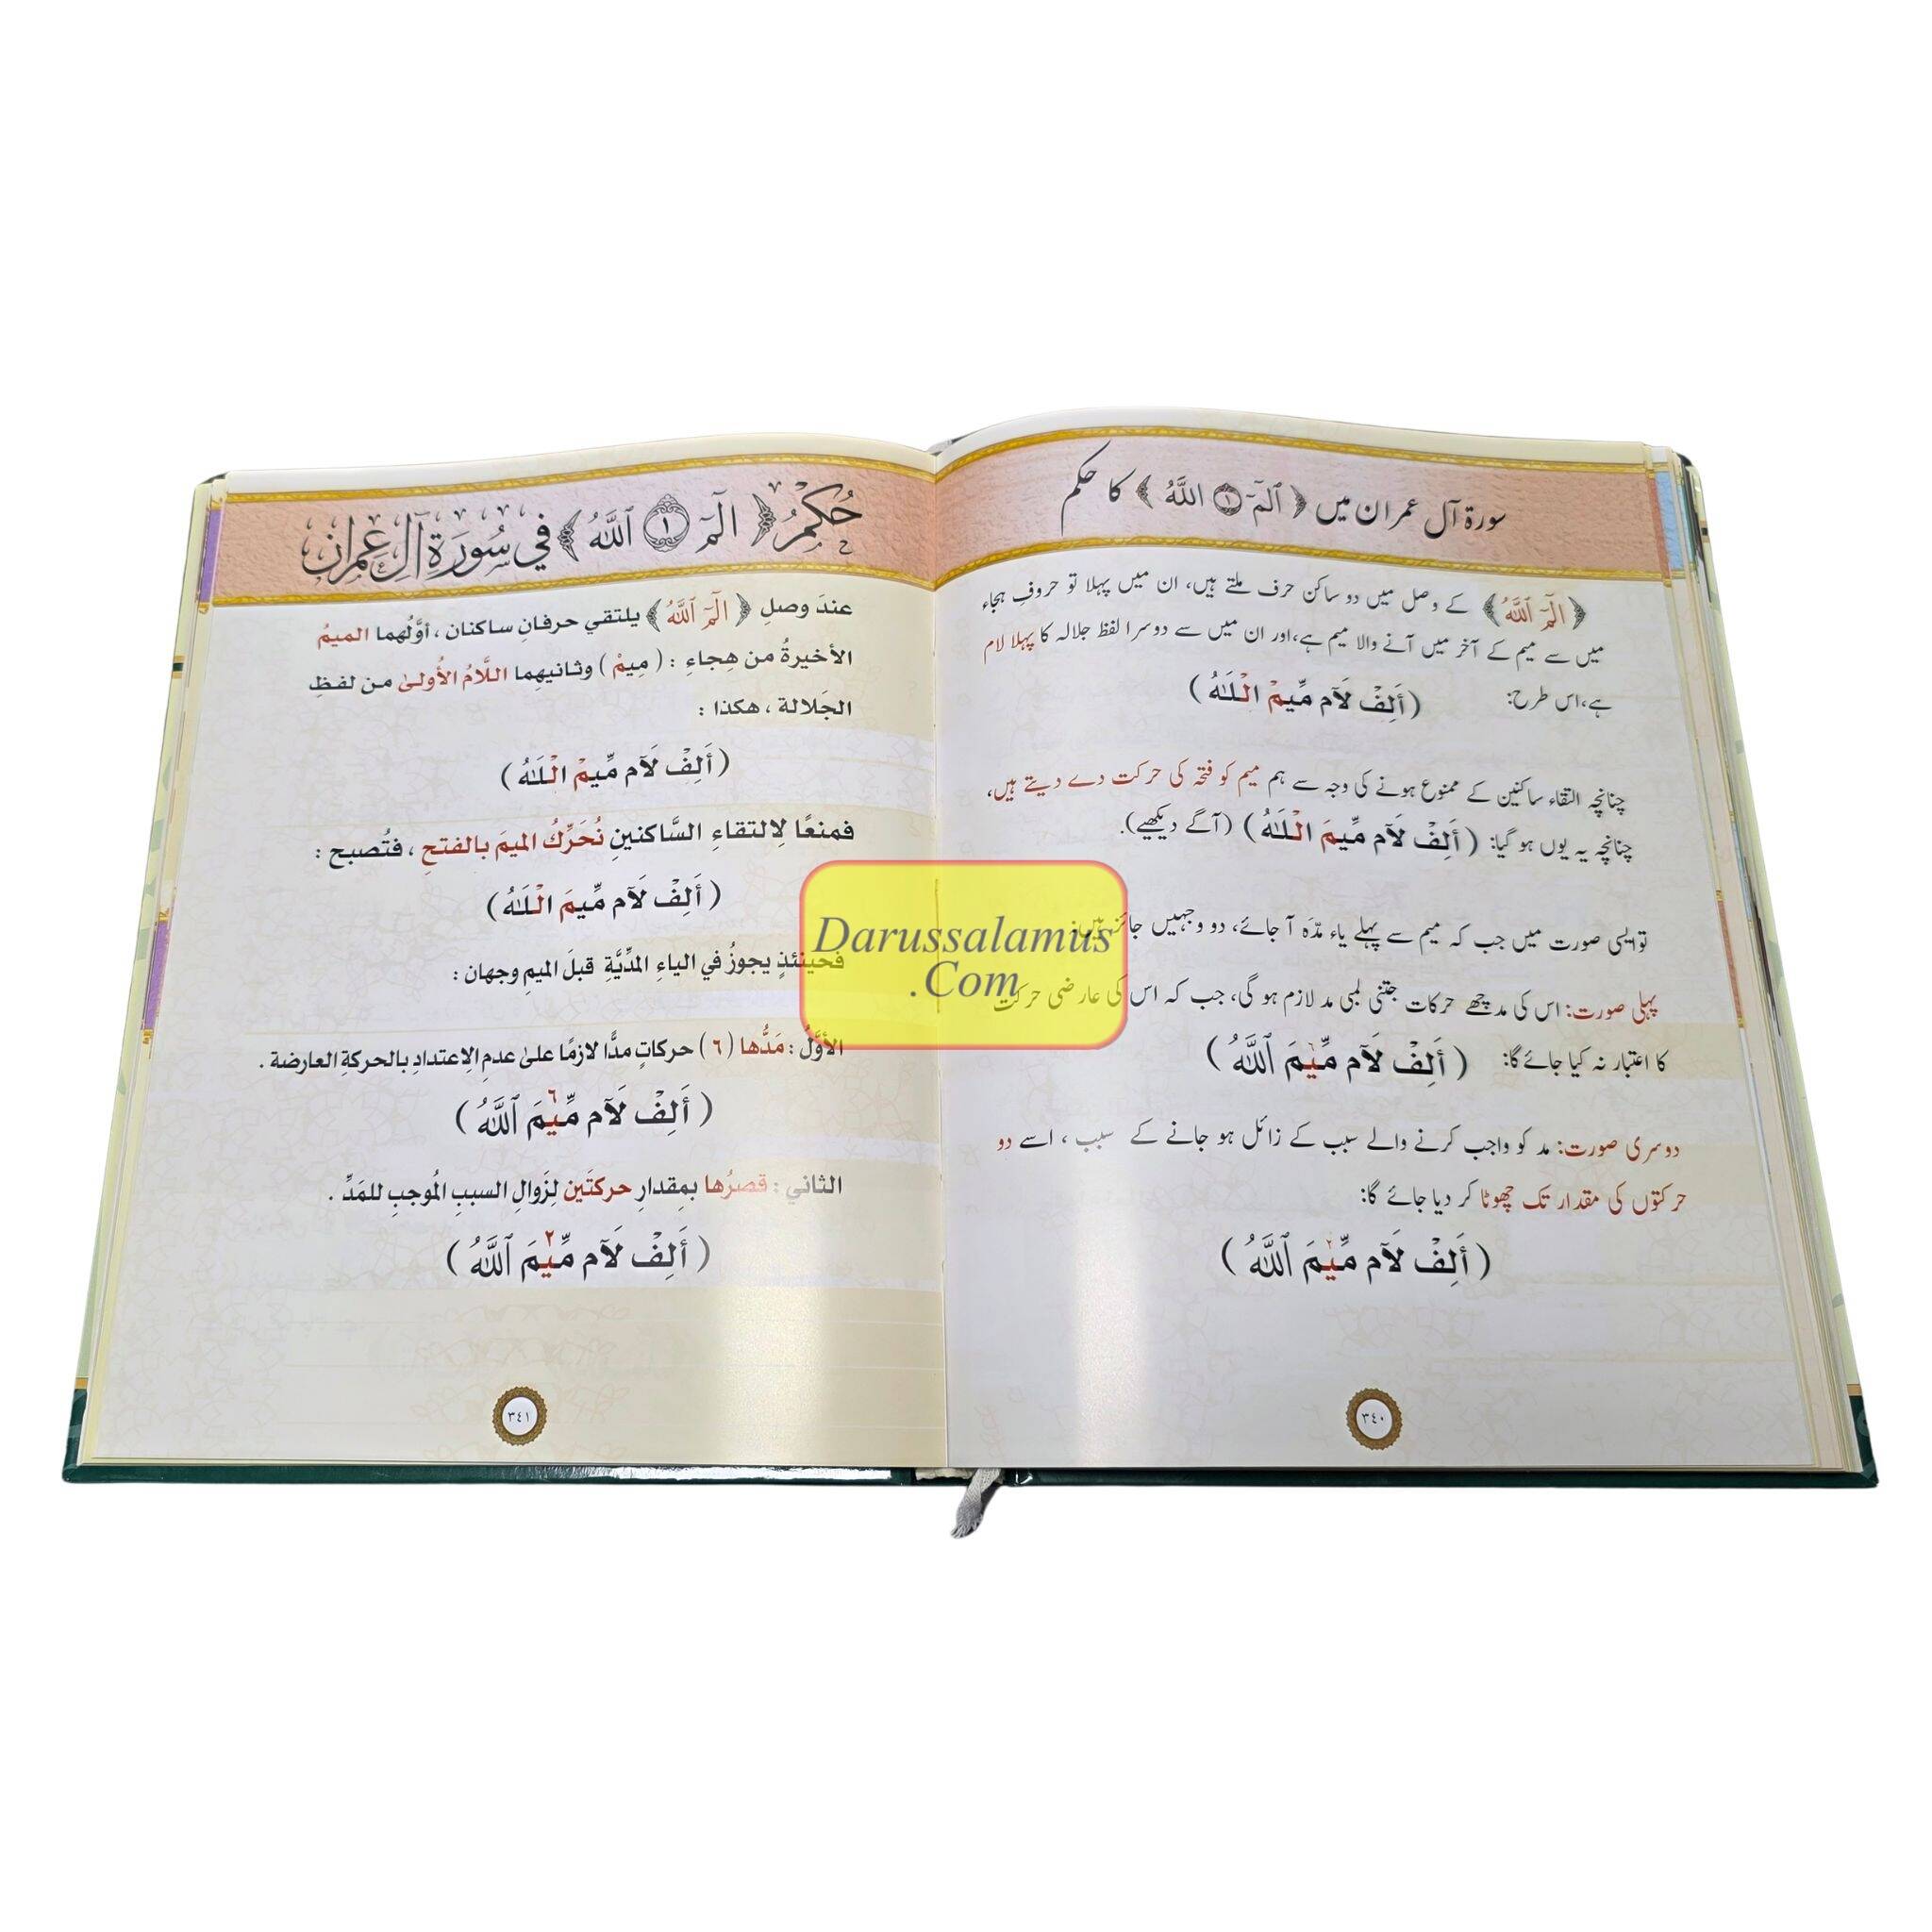 سورۃ آل عمران میں ﴿ الٓمٓ ۝١ اللَّهُ ﴾ کا حکم
﴿الٓمٓ ٱللَّهُ﴾ کے وصل میں دو ساکن حرف ملتے ہیں، ان میں پہلا تو حروفِ ہجاء
میں سے میم کے آخر میں آنے والا میم ہے،اور ان میں سے دوسرا لفظ جلالہ کا پہلا لام
ہے،اس طرح: (أَلِفْ لَآم مِّيمْ الْلَـٰهُ)
چنانچہ التقاء ساکنین کے ممنوع ہونے کی وجہ سے ہم میم کو فتحہ کی حرکت دے دیتے ہیں،
چنانچہ یہ یوں ہو گیا: (أَلِفْ لَآم مِّيمَ الْلَـٰهُ) (آگے دیکھیے).
توایسی صورت میں جب کہ میم سے پہلے یاء مدّہ آ جائے، دو وجہیں جائز ہیں:
پہلی صورت: اس کی مد چھے حرکات جتنی لمبی مد لازم ہو گی، جب کہ اس کی عارضی حرکت
کا اعتبار نہ کیا جائے گا: (أَلِفْ لَآم مِّيمَ ٱللَّهُ)
دوسری صورت: مد کو واجب کرنے والے سبب کے زائل ہو جانے کے سبب ، اسے دو
حرکتوں کی مقدار تک چھوٹا کر دیا جائے گا:
(أَلِفْ لَآم مِّيمَ ٱللَّهُ)
٣٤٠
حُكْمُ ﴿ الٓمٓ ۝١ ٱللَّهُ ﴾ في سُورَةِ آلِ عِمرانَ
عندَ وصلِ ﴿ الٓمٓ ٱللَّهُ ﴾ يلتقي حرفانِ ساكنان ، أوَّلُهما الميمُ
الأخيرةُ من هِجاءِ : ( مِيمْ ) وثانيهِما اللَّامُ الأُولىٰ من لفظِ
الجَلالة ، هكذا :
(أَلِفْ لَآم مِّيمْ الْلَـٰهُ)
فمنعًا لِالتقاءِ السَّاكنينِ نُحَرِّكُ الميمَ بالفتحِ ، فتُصبح :
(أَلِفْ لَآم مِّيمَ الْلَـٰهُ)
فحينئذٍ يجوزُ في الياءِ المدِّيَّةِ قبلَ الميمِ وجهان :
الأوَّلُ : مَدُّها (٦) حركاتٍ مدًّا لازمًا علىٰ عدمِ الِاعتدادِ بالحركةِ العارضة .
(أَلِفْ لَآم مِّي٦مَ ٱللَّهُ)
الثاني : قصرُها بمِقدارِ حركتَين لِزَوالِ السببِ المُوجبِ للمَدِّ .
(أَلِفْ لَآم مِّي٢مَ ٱللَّهُ)
٣٤١
Darussalamus
.Com